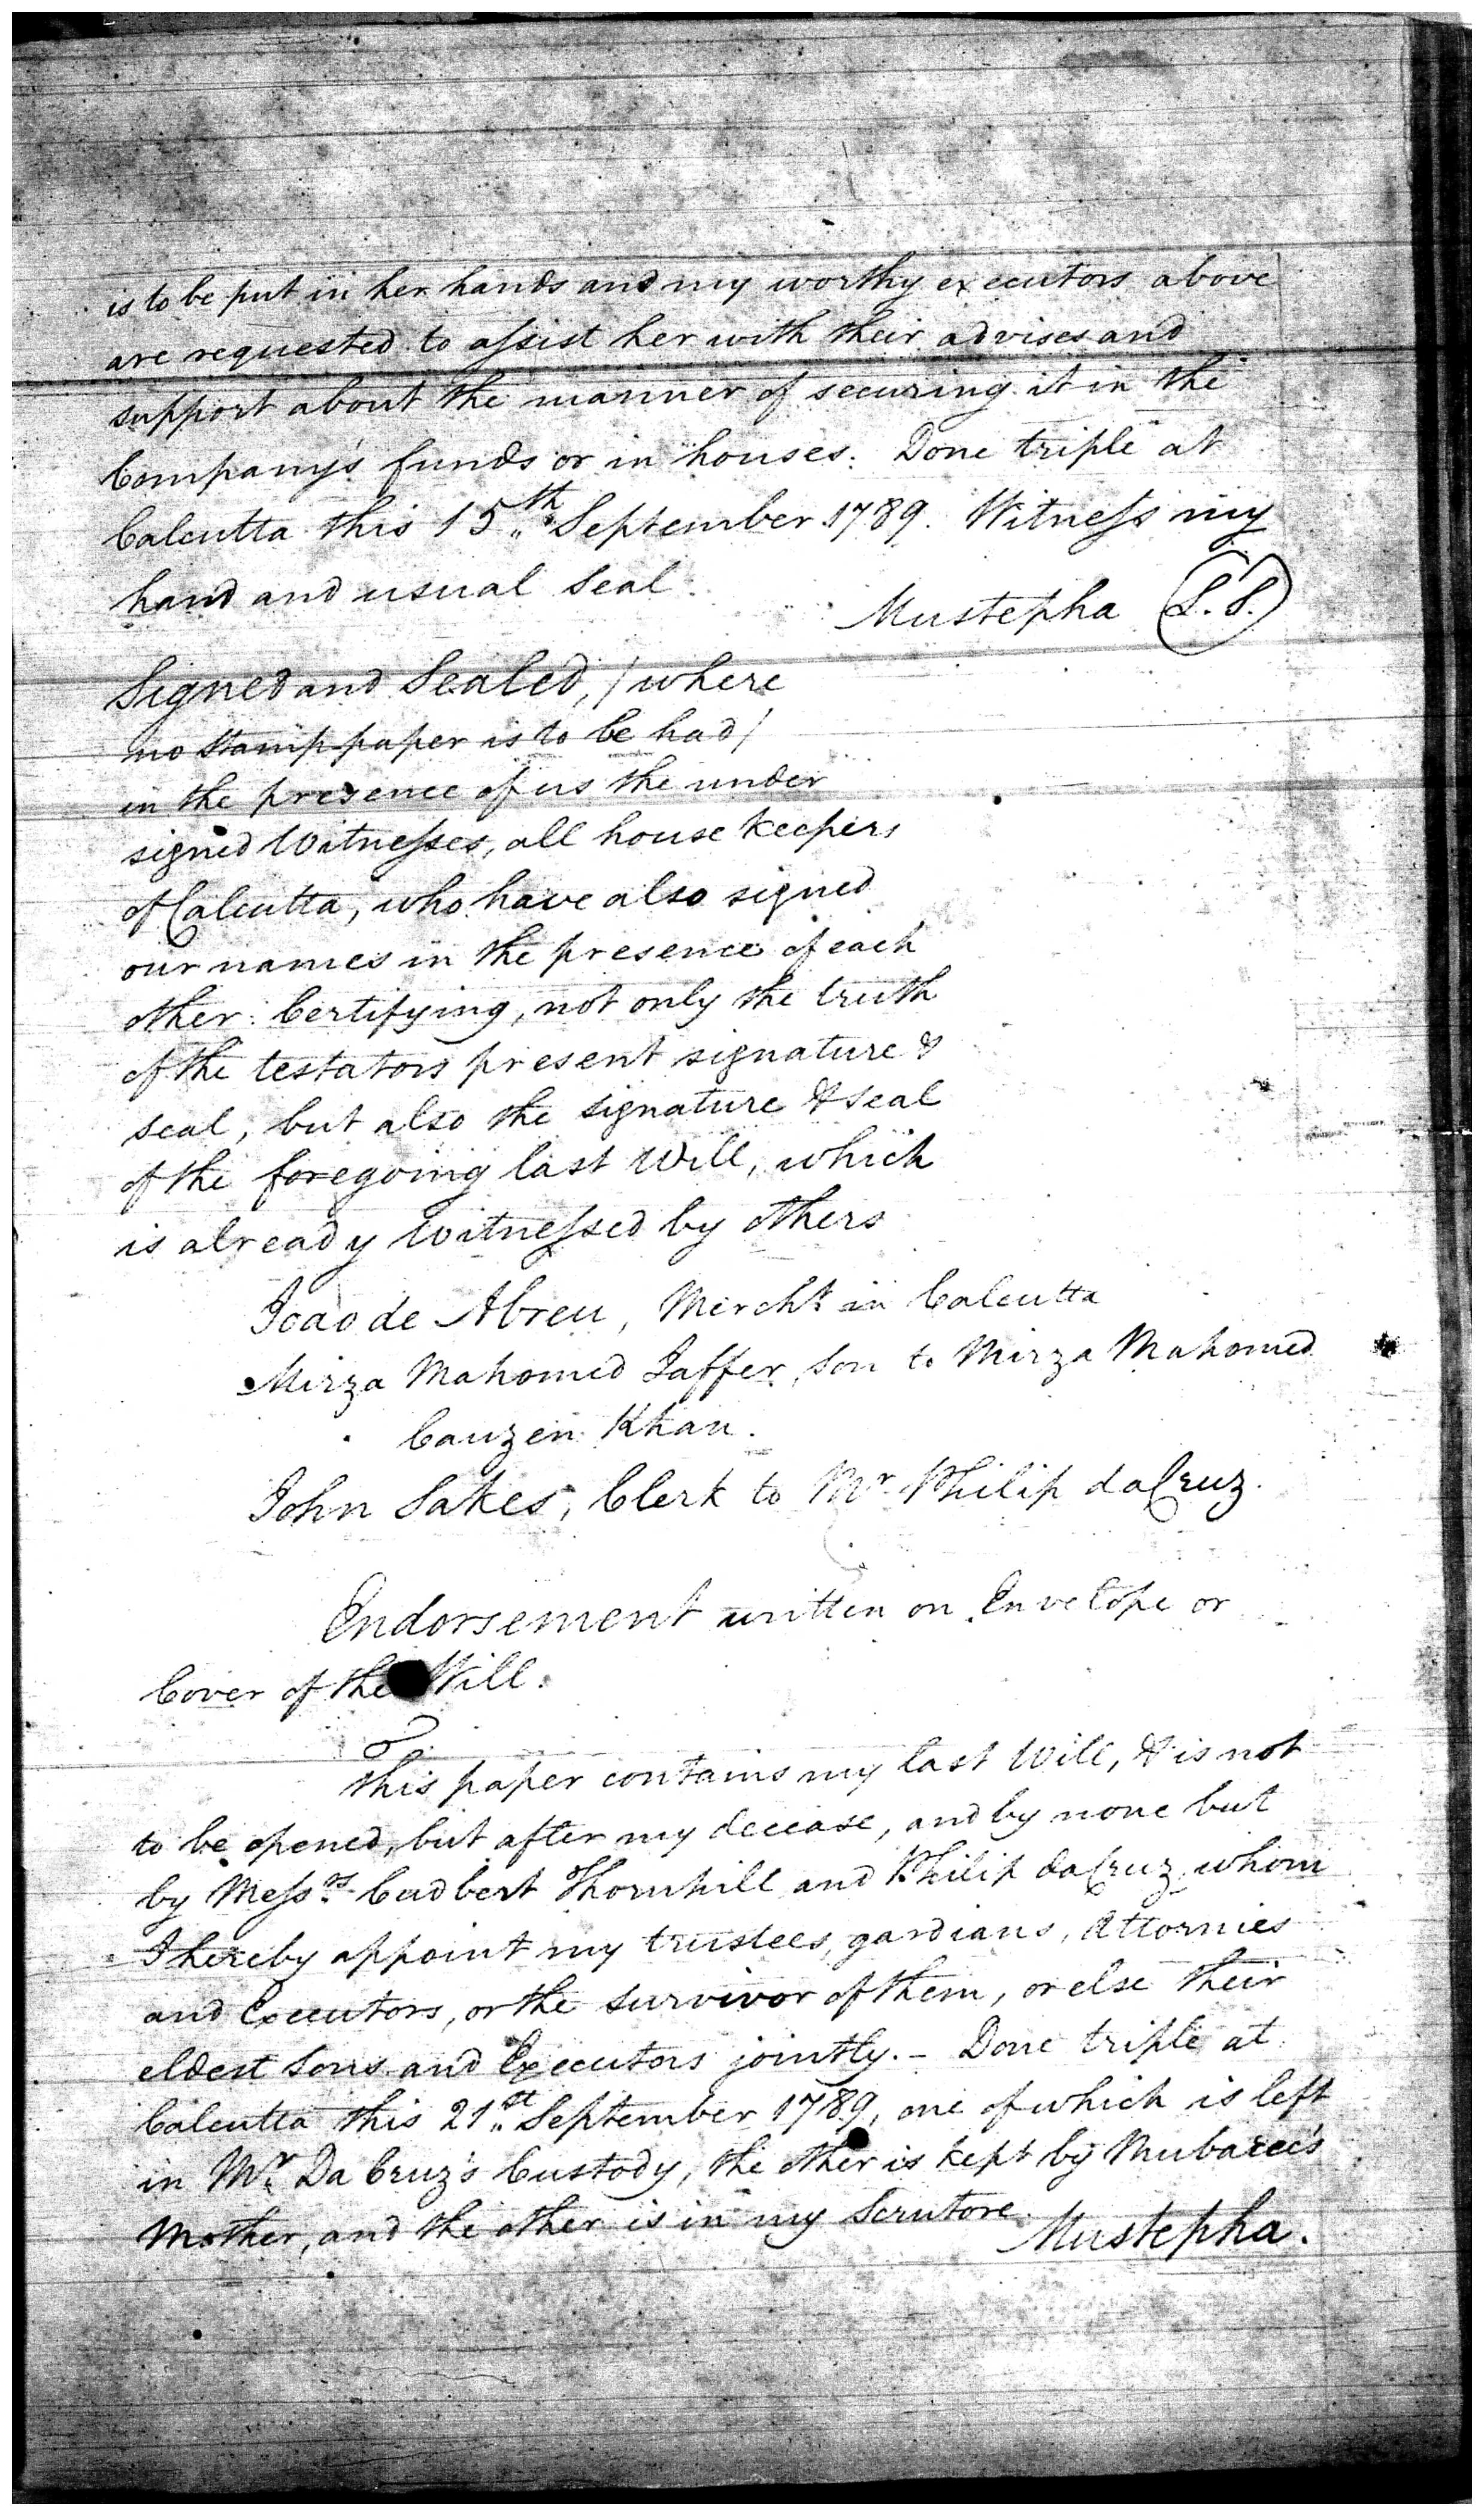 is to be put in her hands and my worthy executors above
are requested to assist her with their advises and
support about the manner of securing it in the
Company's funds or in houses. Done triple at
Calcutta this 15th September 1789. Witness my
hand and usual Seal.
Mustepha (L.S.)
Signed and Sealed, / where
no stamp paper is to be had /
in the presence of us the under
signed Witnesses, all house keepers
of Calcutta, who have also signed
our names in the presence of each
other: Certifying, not only the truth
of the testators present signature &
seal, but also the signature & seal
of the foregoing last Will, which
is already Witnessed by others
Joao de Abreu, Mercht in Calcutta
Mirza Mahomed Jaffer, Son to Mirza Mahomed
Cauzen Khan.
John Sakes, Clerk to Mr Philip da Cruz.
Endorsement written on Envelope or
Cover of the Will.
this paper contains my last Will, & is not
to be opened, but after my decease, and by none but
by Messrs Cudbert Thornhill and Philip da Cruz whom
I hereby appoint my trustees, gardians, Attornies
and Executors, or the survivor of them, or else their
eldest Sons and Executors jointly. - Done triple at
Calcutta this 21st September 1789, one of which is left
in Mr Da Cruz's Custody, the other is kept by Mubarec's
Mother, and the other is in my Scrutore.
Mustepha.